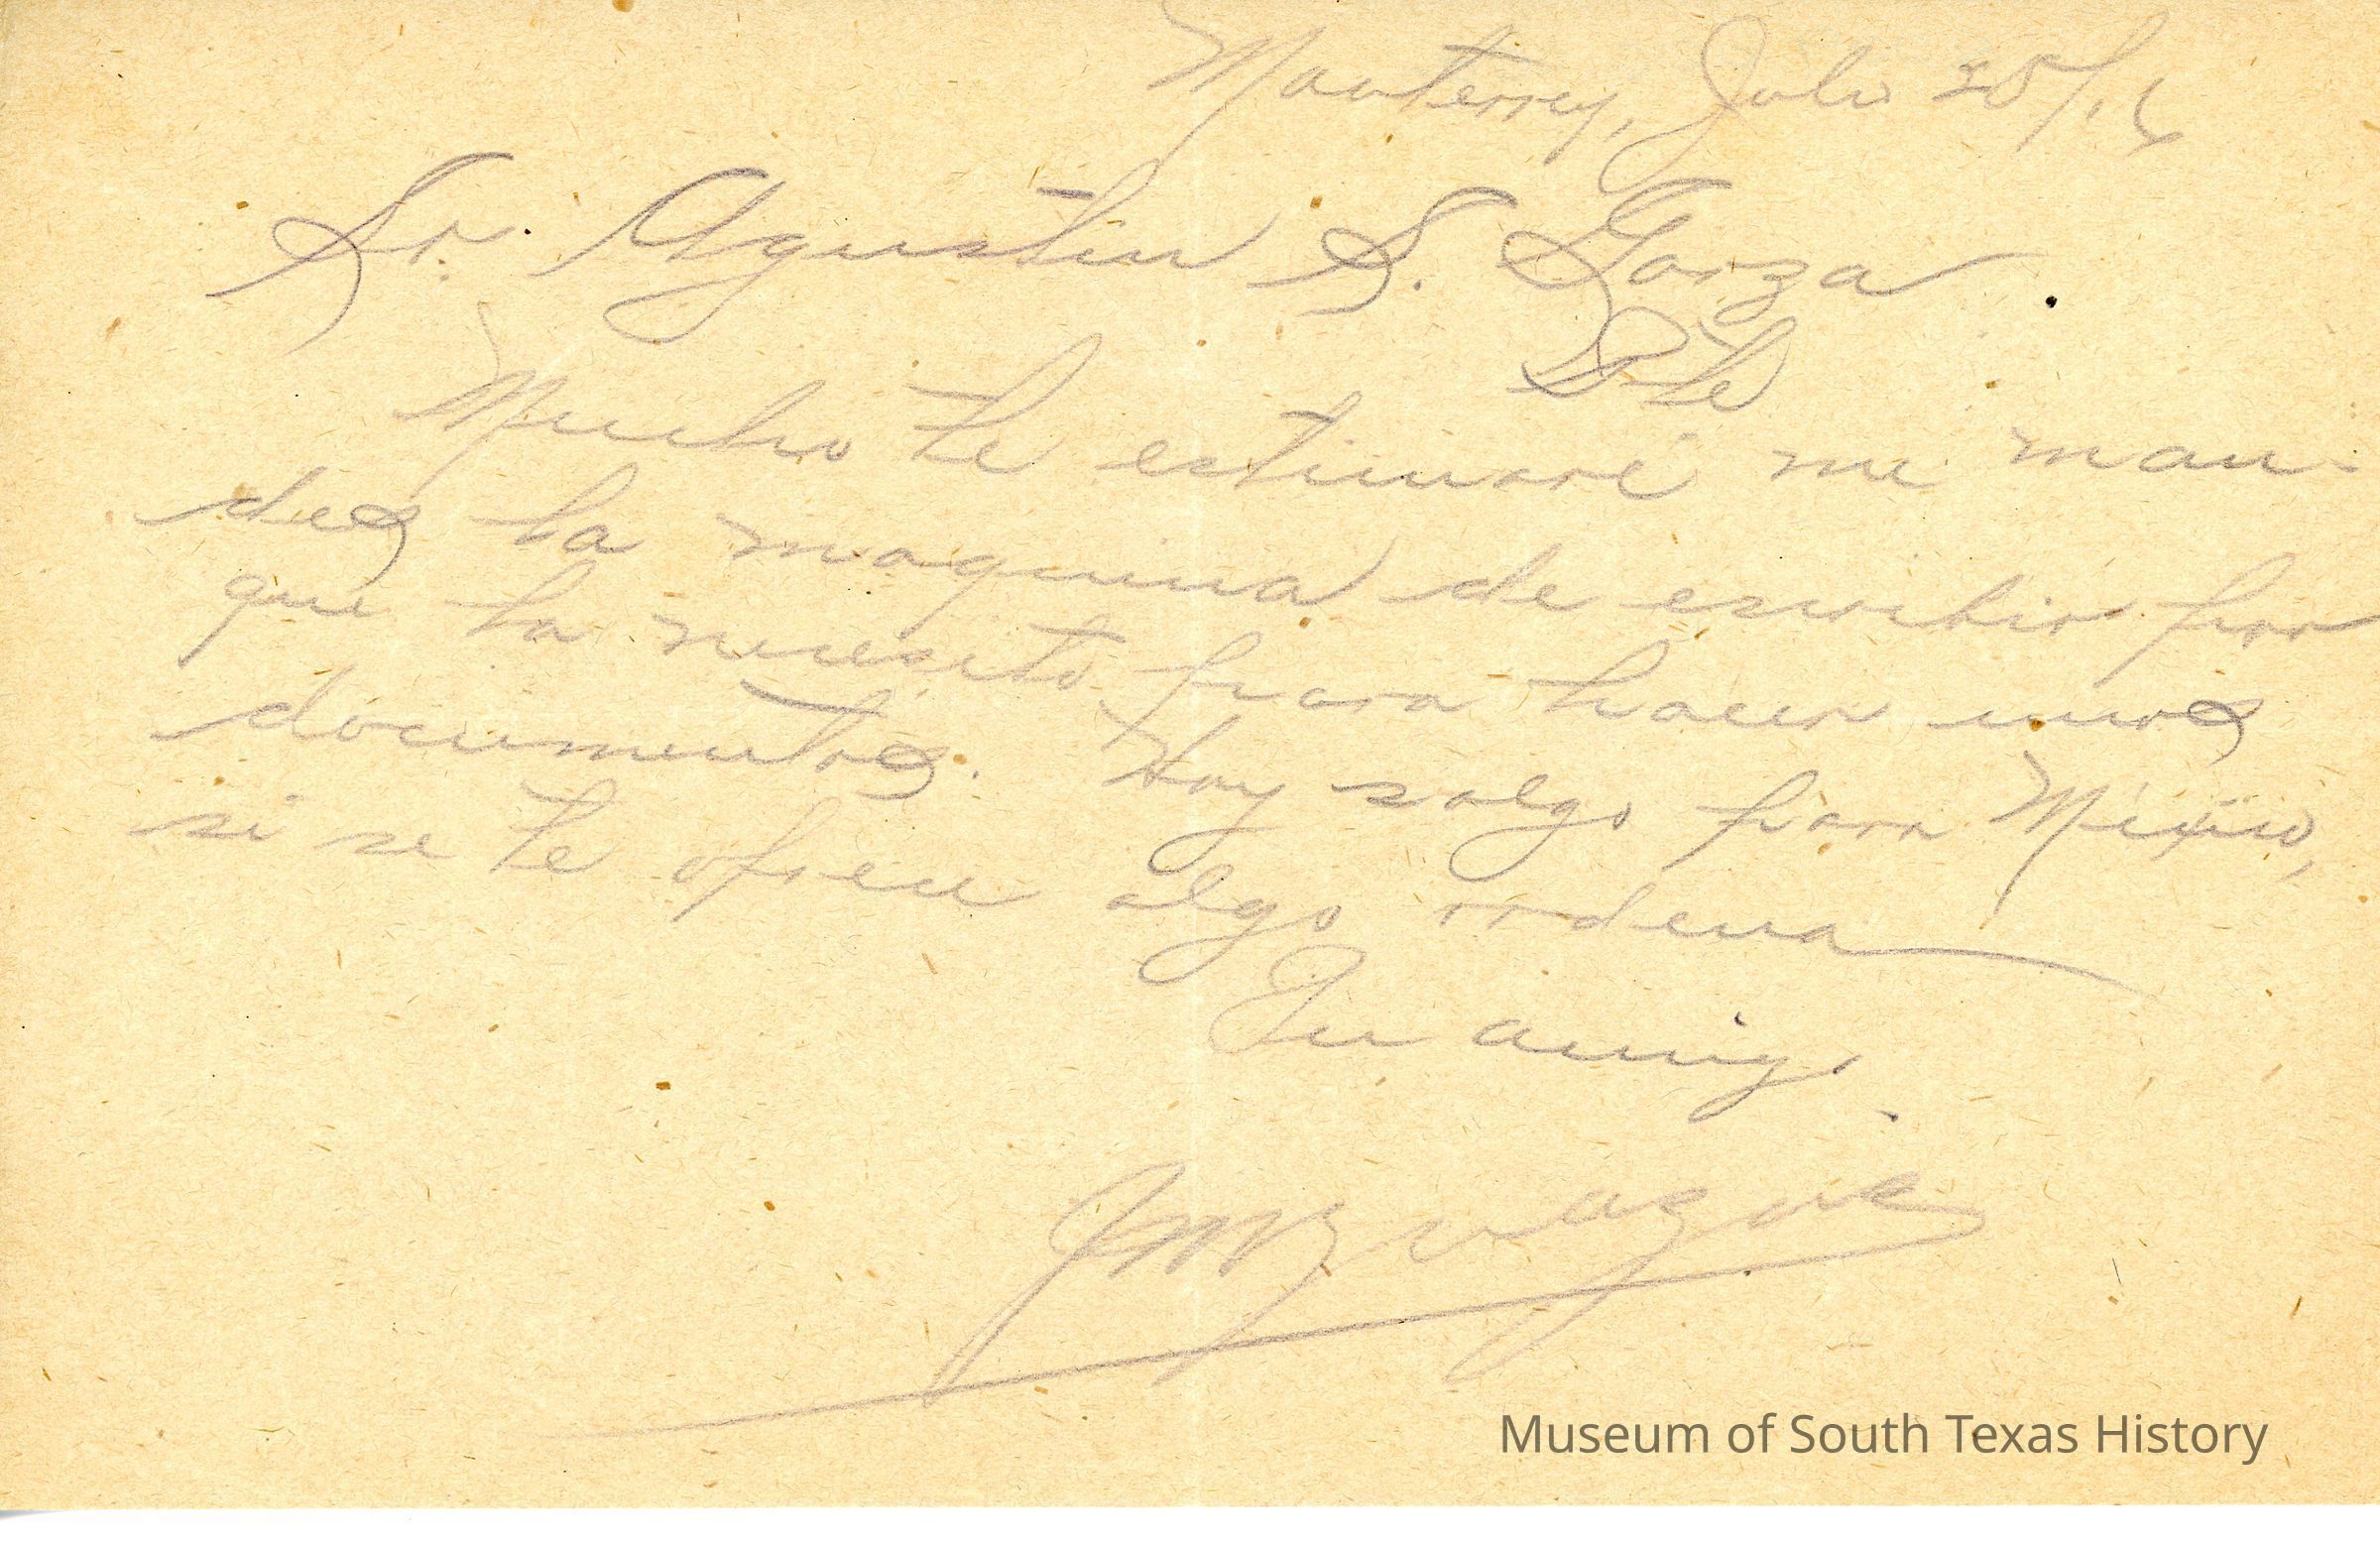 Monterrey, Julio 20/16
Sr. Agustin S. Garza.
Pte
Mucho te estimaré me man-
des la maquina de escribir por
que la necesito para hacer unos
documentos. Hoy salgo para México,
si se te ofrece algo ordena
Tu amigo.
Museum of South Texas History